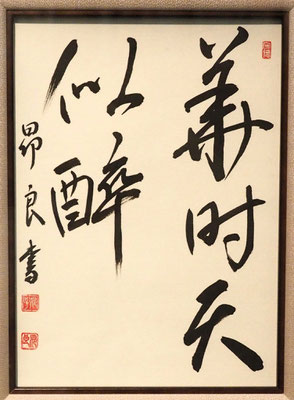 華时天
似醉
昴良書